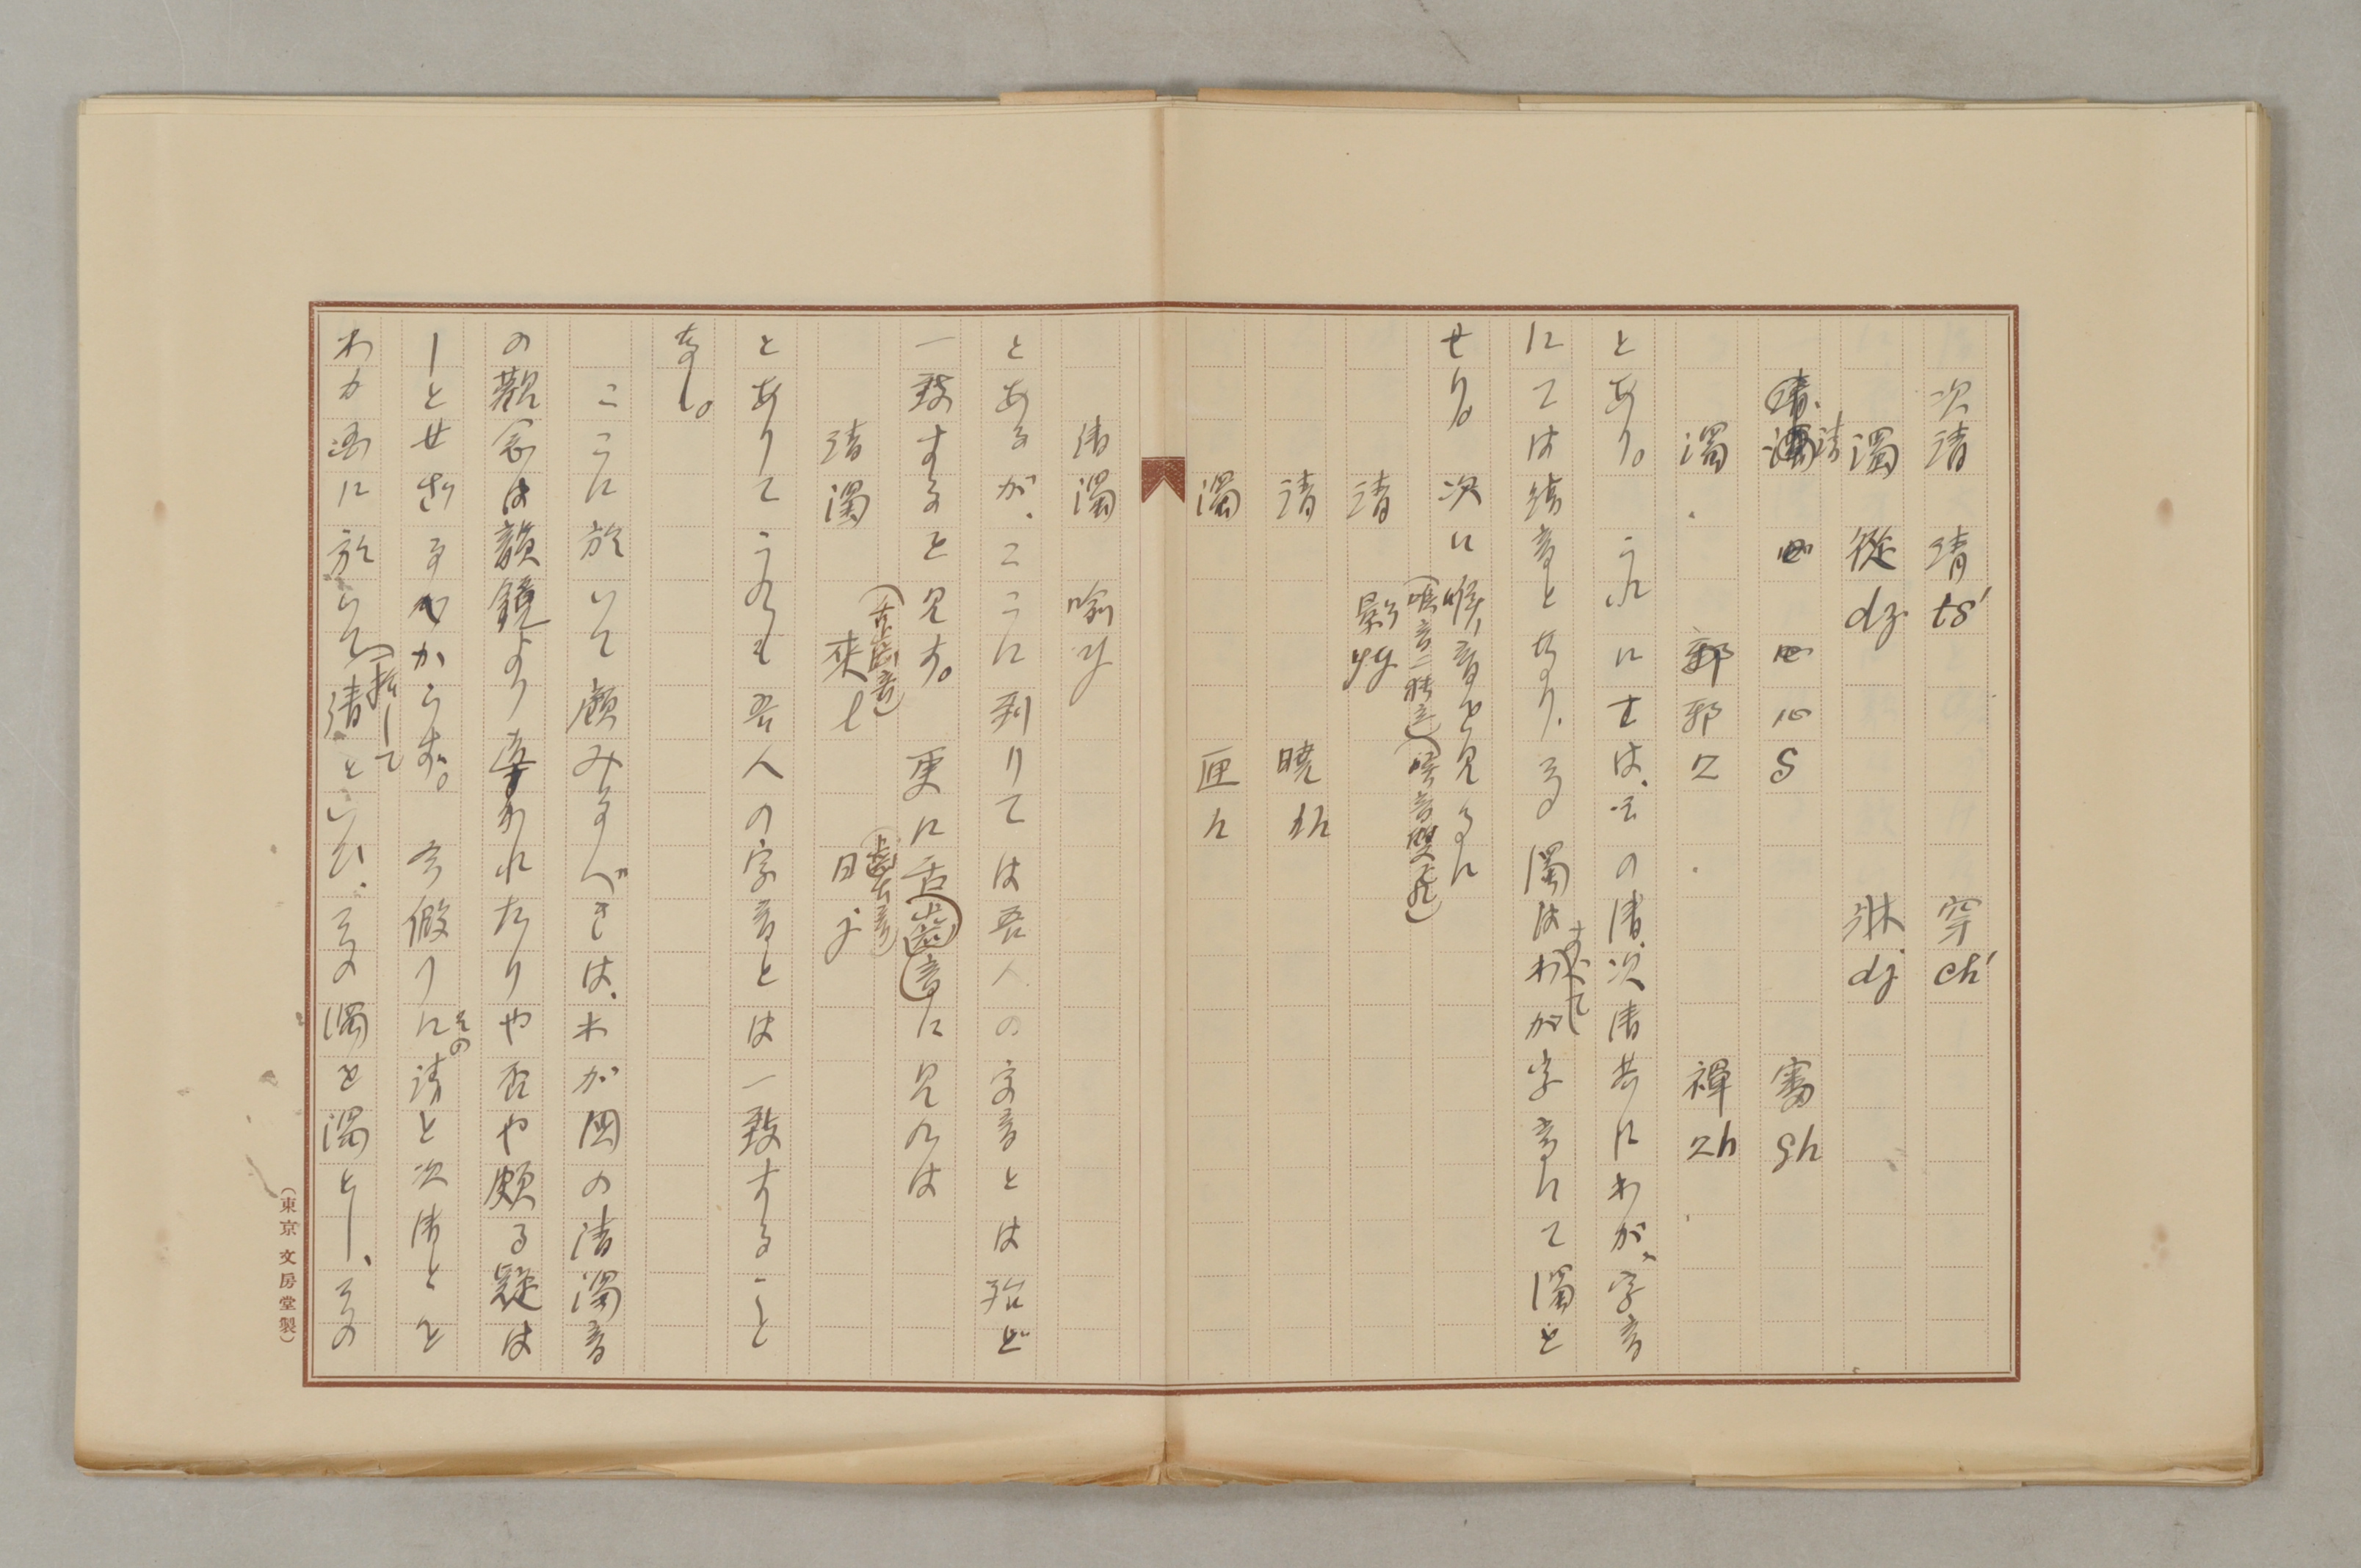 次清　清 ts'　穿 ch'
濁　從 dz　牀 dj
清　心 s　審 sh
濁　邪 z　禪 zh
とあり。これに古は、その清、次清共にわが、字音
にては清音となり、その濁はわが字音にて濁と
すべて
せり。次に喉音を見るに
(喉音二独立)(喉音雙飛)
清　影
清　曉 h
濁　匣 h
清濁　喩 y
とあるが、ここに到りては吾人の字音とは殆ど
一致するを見す。更に舌齒音に見れば
(舌齒音)　(齒舌音)
清濁　來 l　日 j
とありてこれも吾人の字音とは一致すること
なし。
ここに於いて顧みるべきは、わが国の清濁音
の觀念は韻鏡より導かれたりや否や頗る疑は
しとせざるべからず。今假りにその清と次清とを
わが国に於いて一括して清といひ、その濁を濁とし、その
（東京 文房堂製）